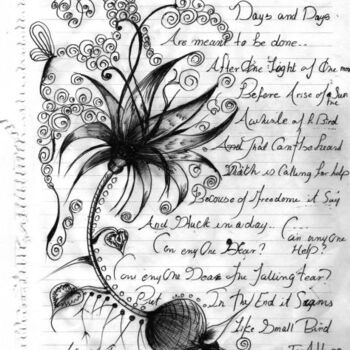 Days and Days
Are meant to be done..
After One Light of One
Before Arise of a Sun
A whole of A Bird
And That Can't be heard
That is Calling for help
Because of Freedome it Say
And Pluck in a day..
Can eny One Dear? Can enyOne Help?
Can eny One Dear the falling tear?
But In The End it Seams
Like Small Bird